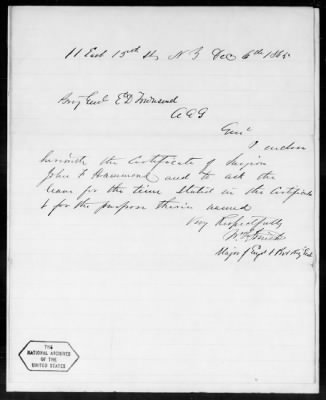 11 East 15th St, N Y Dec 6th 1865
Brig Genl E D Townsend
A A G
Genl
I enclose
herewith the Certificate of Surgeon
John F Hammond and to ask the
leave for the time stated in the Certificate
& for the purpose therein named
Very Respectfully
Wm F Smith
Major of Engs & Bvt Maj Genl
THE
NATIONAL ARCHIVES
OF THE
UNITED STATES